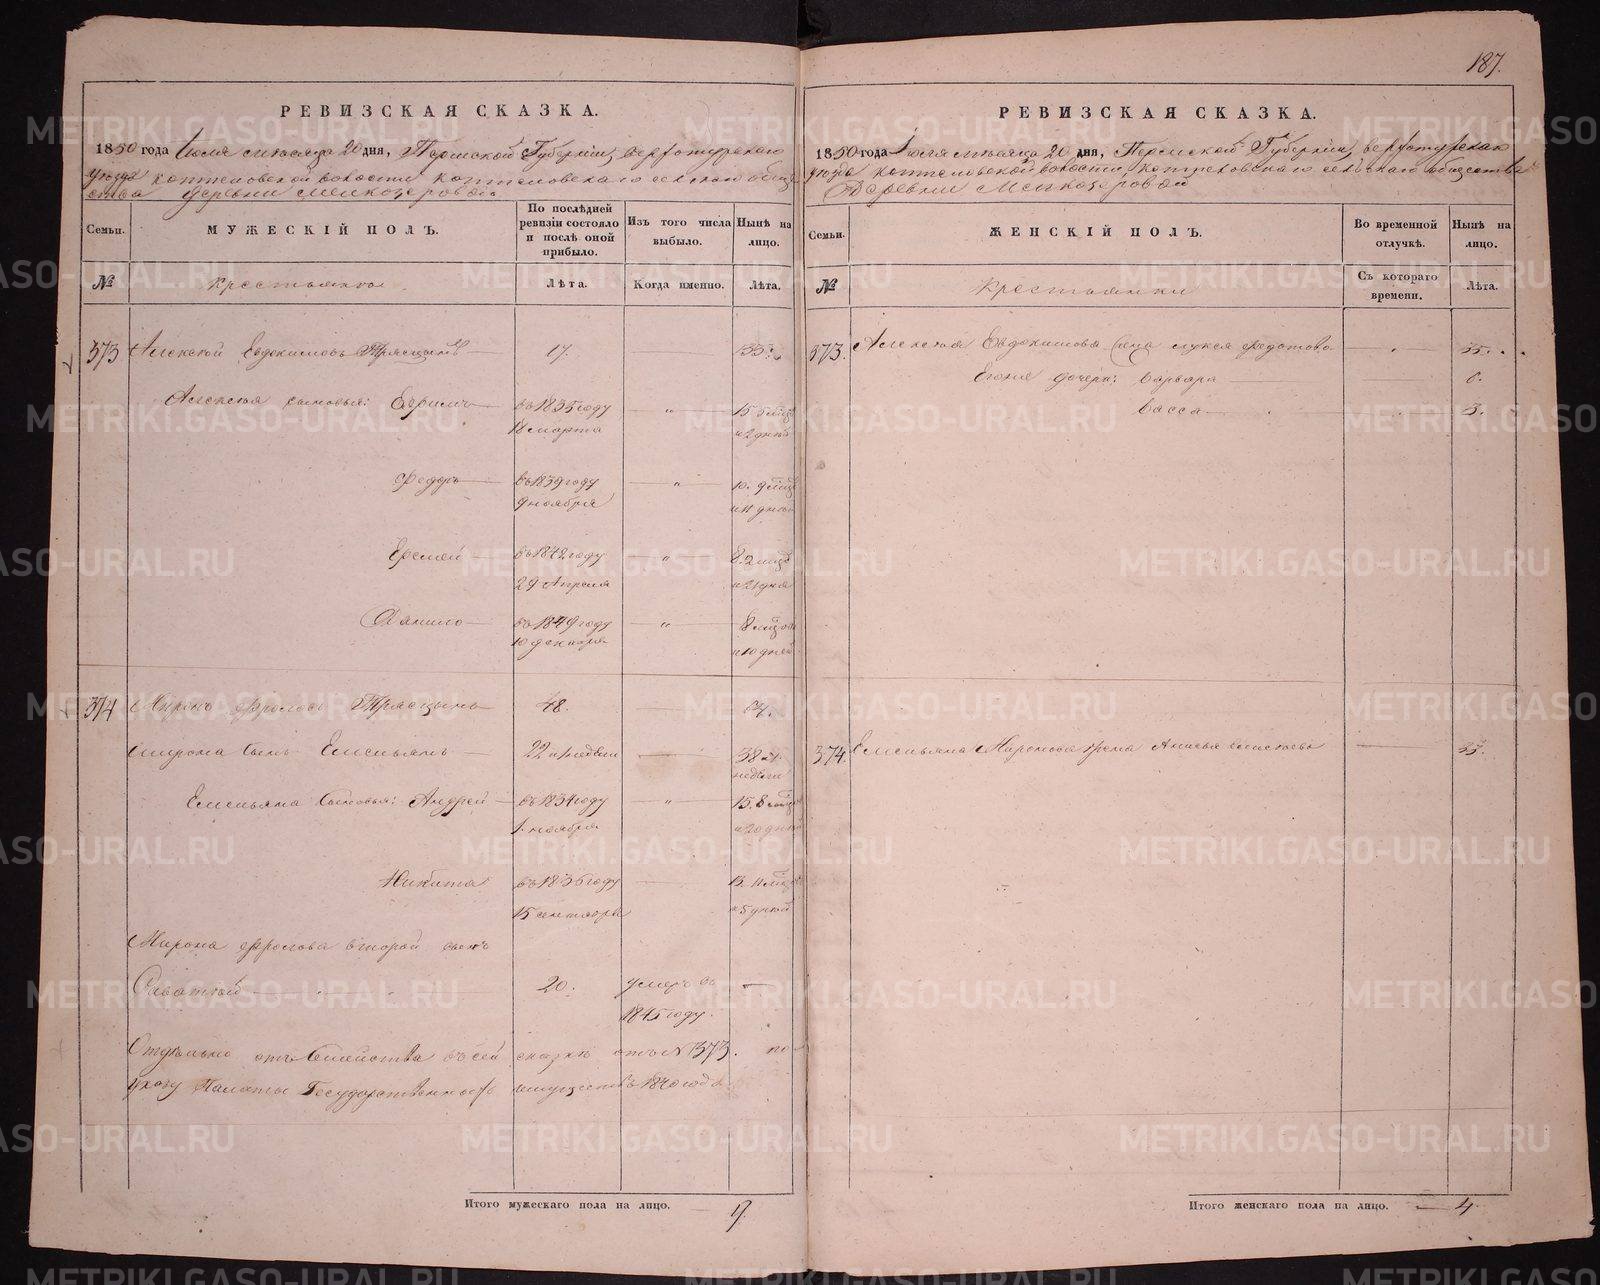 187.
РЕВИЗСКАЯ СКАЗКА.
1850 года Июля месяца 20 дня, Пермской Губернии, верхотурскаго
уезда коптеловской волости коптеловскаго сельскаго общества
деревни Мелкозеровой
Семьи.
МУЖЕСКІЙ ПОЛЪ.
По послѣдней ревизіи состояло и послѣ оной прибыло.
Изъ того числа выбыло.
Нынѣ на лицо.
№
Крестьянъ
Лѣта.
Когда именно.
Лѣта.
373 Алексей Евдокимовъ Трясцынъ 17. 33.
Алексея сыновья: Ефримъ въ 1835 году 15. 5 мцов
18 марта и 2 дней
Федоръ въ 1839 году 10. 9 мцов
9 ноября и 11 дней
Еремей въ 1842 году 8. 2 мца
29 Апреля и 21 дня
Данило въ 1849 году 8 мцов
10 декабря и 10 дней
374 Миронъ Фроловъ Трясцынъ 48. 64.
Мирона сынъ Емельянъ 22 и 1 недели 38 и 1
недели
Емельяна сыновья: Андрей въ 1834 году 15. 8 мцов
1. ноября и 20 дней
Никита въ 1836 году 13. 11 мцов
15 сентября и 5 дней
Мирона Фролова второй сынъ
Саватей 20. умеръ въ
1845 году.
Отдельно отъ семейства въ сей сказке отъ N 373. по
указу Палаты Государственныхъ имуществъ 1840 года
Итого мужескаго пола на лицо. 9.
РЕВИЗСКАЯ СКАЗКА.
1850 года Июля месяца 20 дня, Пермской Губернии, верхотурскаго
уезда коптеловской волости, коптеловскаго сельскаго общества
Деревни Мелкозеровой
Семьи.
ЖЕНСКІЙ ПОЛЪ.
Во временной отлучкѣ.
Нынѣ на лицо.
№
Крестьянки
Съ котораго времени.
Лѣта.
373. Алексея Евдокимова жена Федотова 35.
Егоже дочери: Варвара 6.
Васса 3.
374. Емельяна Миронова жена 35.
Итого женскаго пола на лицо. 4
METRIKI.GASO-URAL.RU